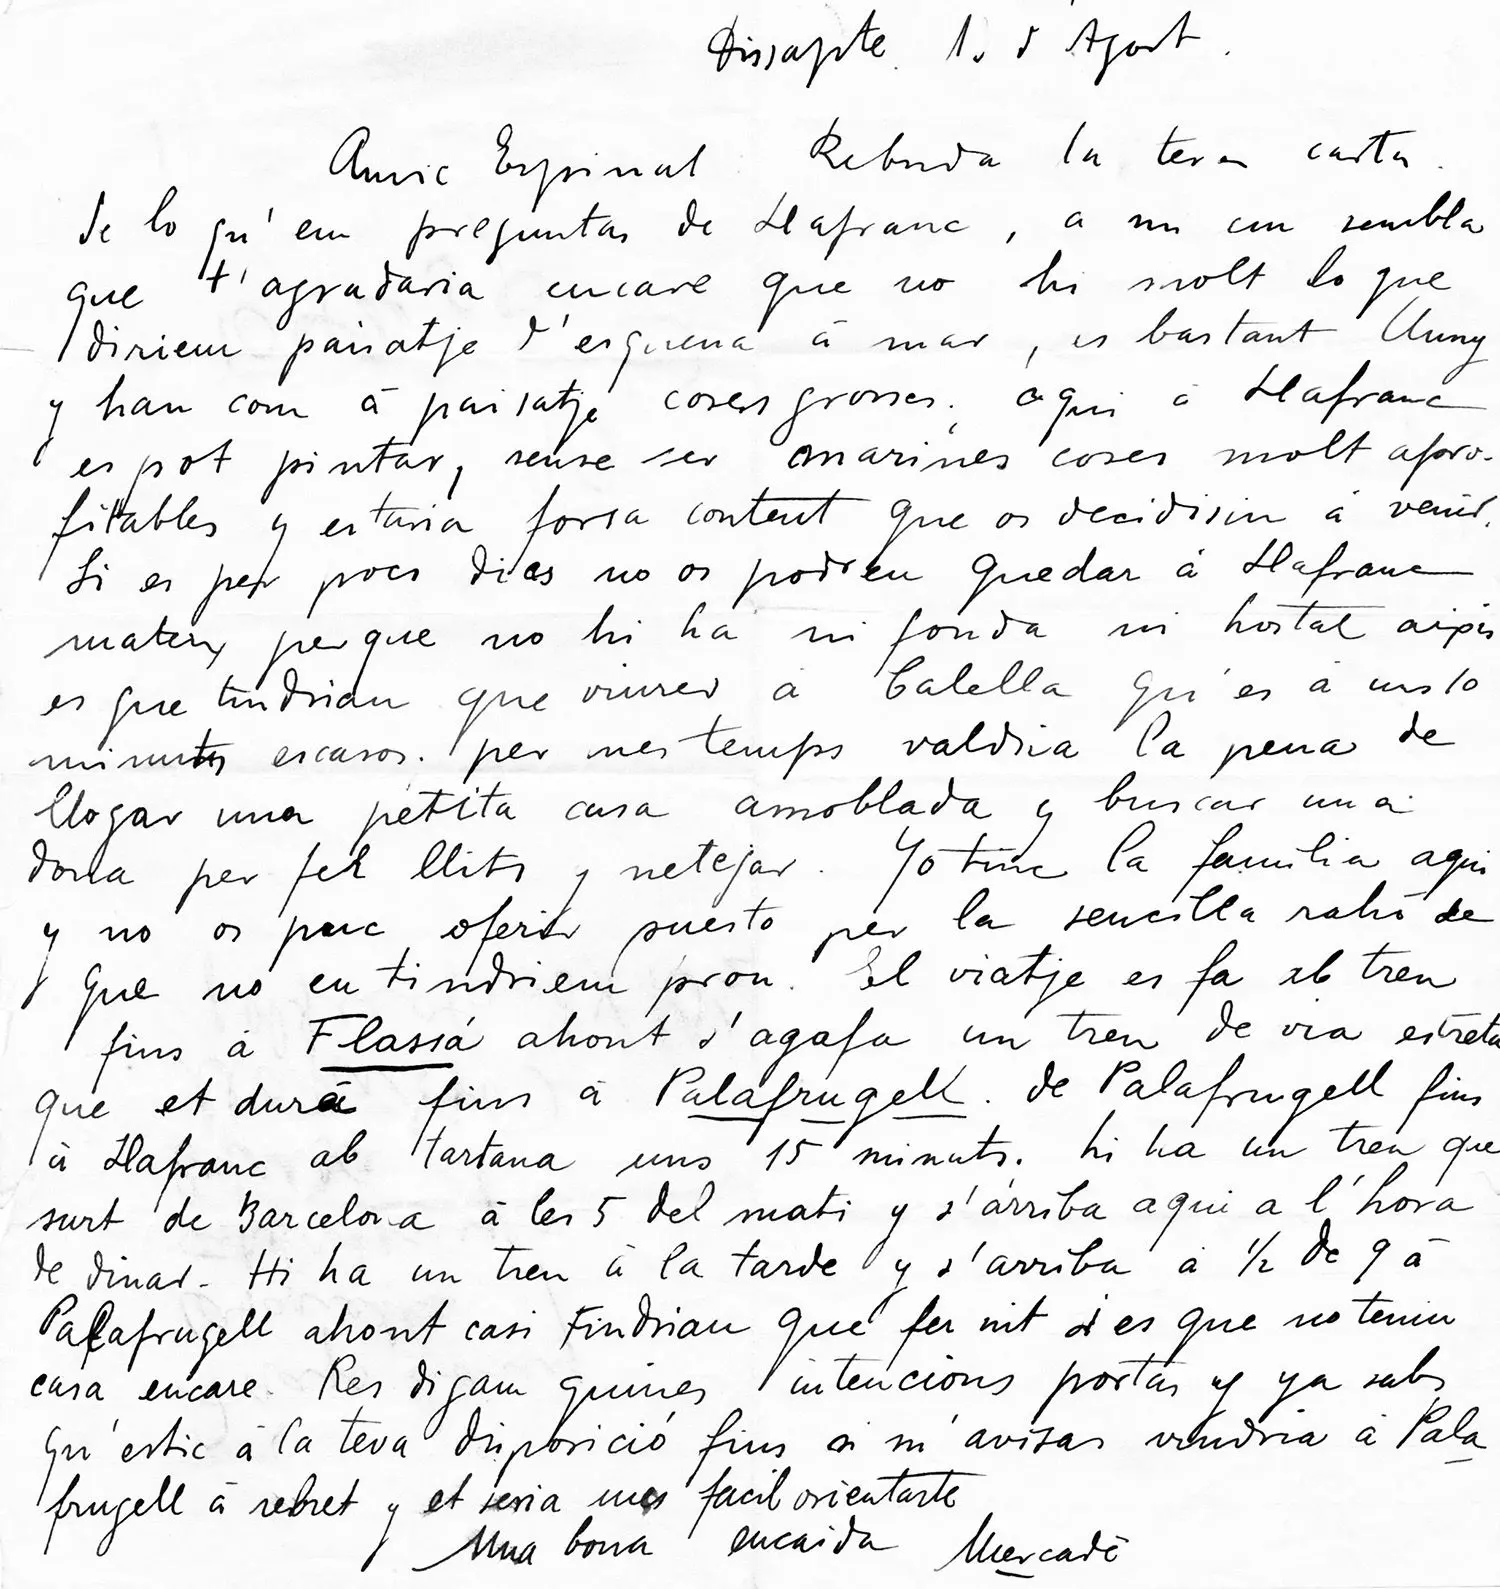 Dissapte 1. d'Agost.
Amic Espinal Rebuda la teva carta.
de lo qu'em preguntas de Llafranc, a mi em sembla
que t'agradaria encare que no hi molt lo que
diriem paisatje d'esquena à mar, es bastant lluny
y han com à paisatje coses grosses. aqui à Llafranc
es pot pintar, sense ser marines coses molt apro-
fitables y estaria forsa content que os decidisin à venir.
Si es per pocs dies no os podreu quedar à Llafranc
mateix perque no hi ha ni fonda ni hostal aixis
es que tindriau que viurer à Calella qu'es à uns 10
minuts escasos. per mes temps valdria la pena de
llogar una petita casa amoblada y buscar una
dona per fer llits y netejar. Yo tinc la familia aqui
y no os puc oferir puesto per la sencilla rahó de
que no en tindriem prou. El viatje es fa ab tren
fins à Flassá ahont s'agafa un tren de via estreta
que et durà fins à Palafrugell. de Palafrugell fins
à Llafranc ab tartana uns 15 minuts. hi ha un tren que
surt de Barcelona à les 5 del mati y s'arriba aqui a l'hora
de dinar. Hi ha un tren à la tarde y s'arriba à 1/2 de 9 à
Palafrugell ahont casi tindriau que fer nit si es que no teniu
casa encare. Res digam quines intencions portas y ya sabs
qu'estic à la teva disposició fins si m'avisas vindria à Pala
frugell à rebret y et seria mes facil orientarte
Una bona encaida Mercadé